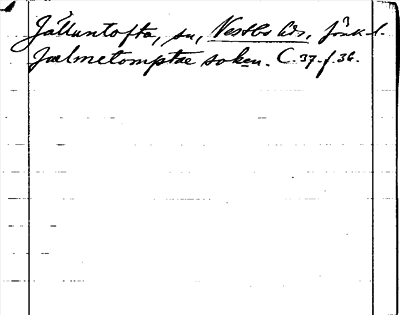 Jälluntofta, sn, Västbo hds, Jönk. l.
Jælmetomptæ soken. C. 37. f. 36.